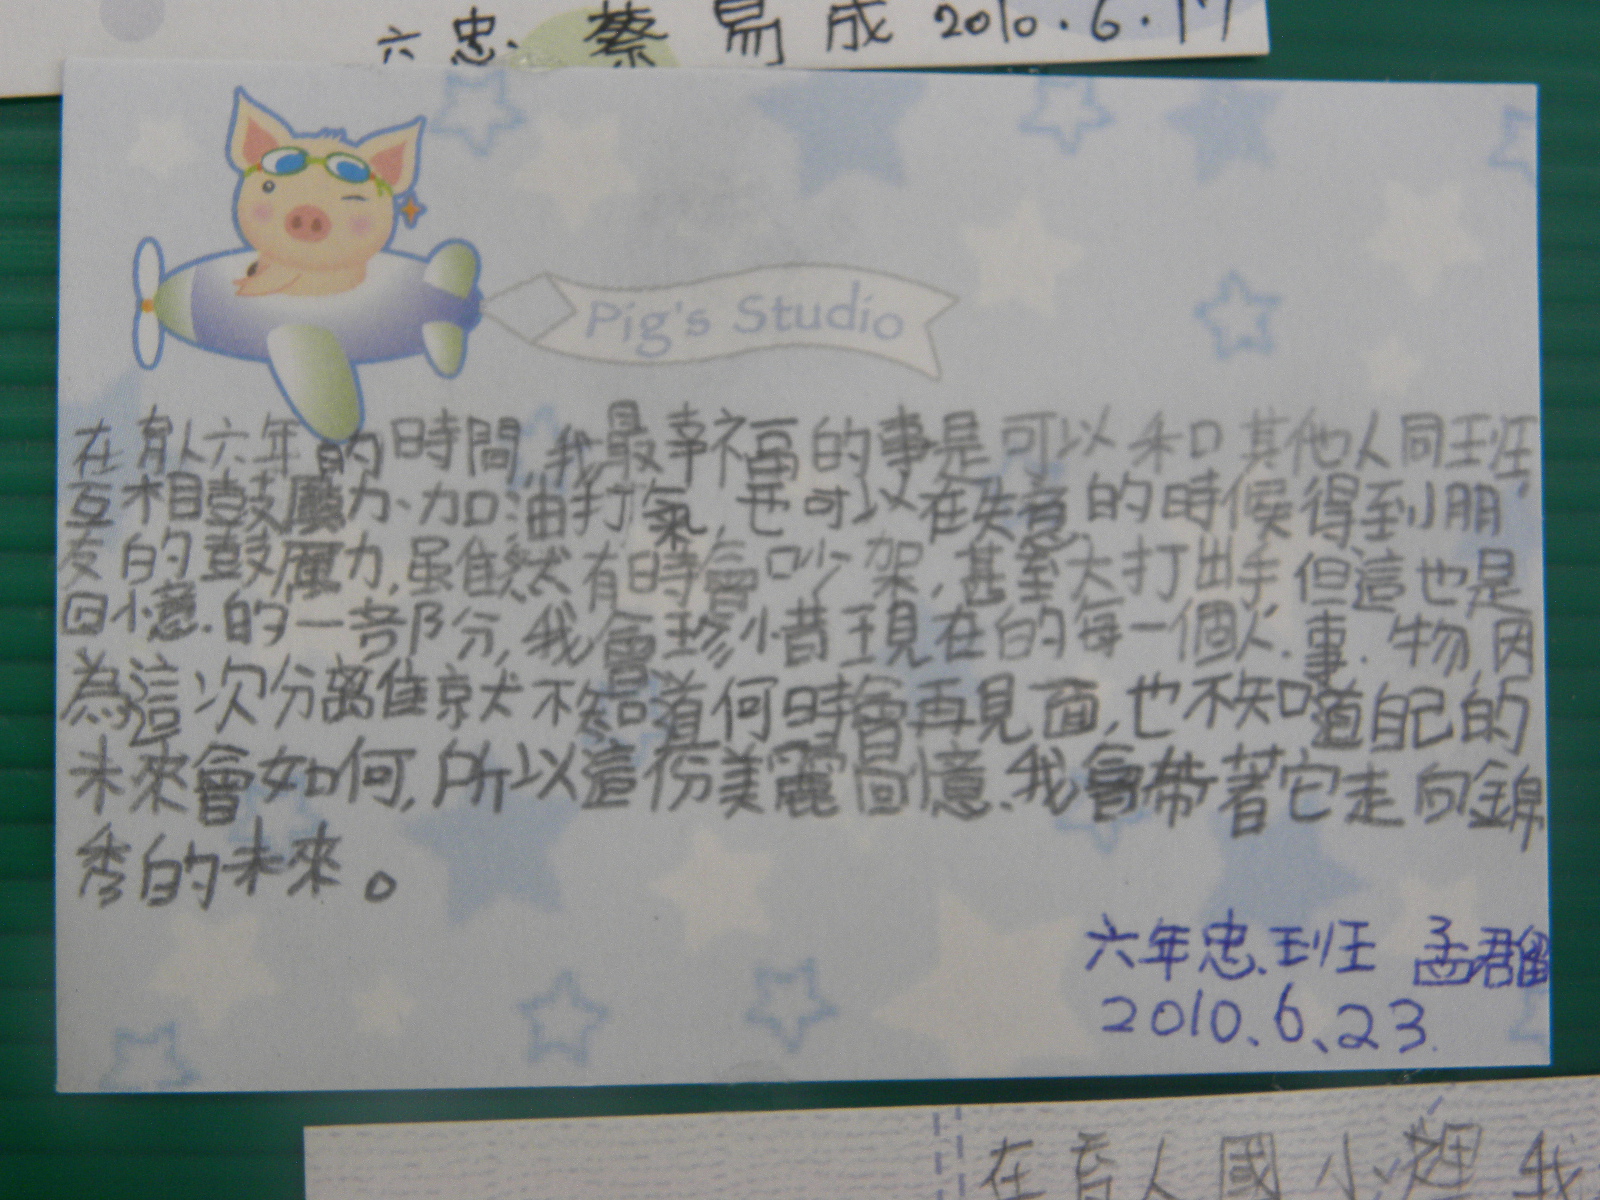 六忠 蔡易成 2010.6.17
Pig's Studio
在育人六年的時間,我最幸福的事是可以和其他人同班,
互相鼓勵、加油打氣,也可以在失意的時候得到朋
友的鼓勵,雖然有時會吵架,甚至大打出手但這也是
回憶的一部分,我會珍惜現在的每一個人.事.物,因
為這次分離誰就不知道何時會再見面,也不知道自己的
未來會如何,所以這份美麗回憶、我會帶著它走向錦
秀的未來。
六年忠班 孟君
2010.6.23.
在育人國小裡 我